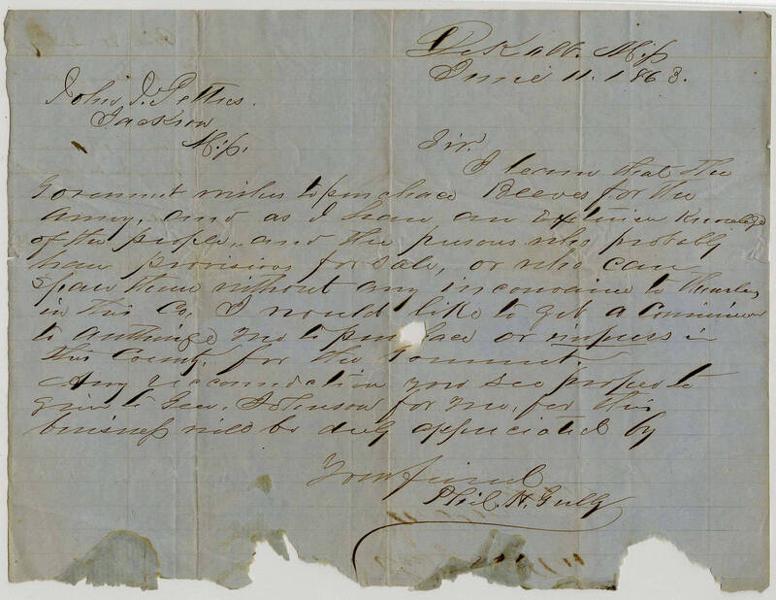 DeKalb. Miſs
June 11. 1863.
John. J. Pettus.
Jackson
Miſs.
Sir.
I learn that the
Goverment wishes to purchase Beeves for the
army, and as I have an extensive knowledge
of the people, and the persons who probably
have provisions for sale, or who can
spare them without any inconvience to themselves
in this Co, I would like to get a Commission
to authorize me to purchase or impress in
this County, for the Goverment
Any reccomendation you see proper to
give to Gen. Johnson for me, for this
businefs will be duly appreciated by
Your friend
Phil. H. Gully